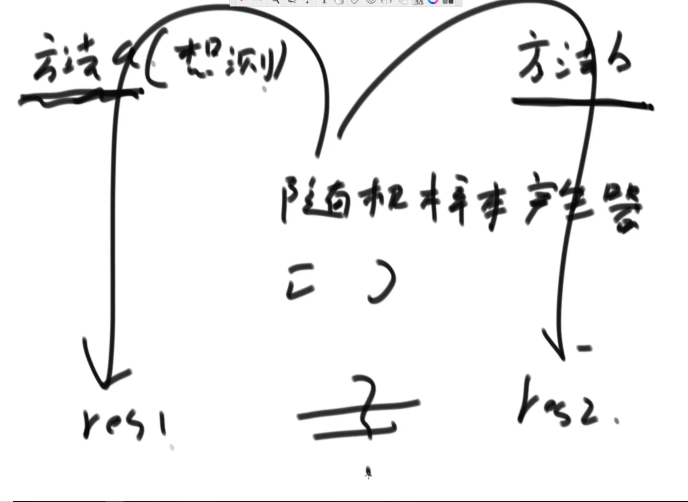 方法a(想测) 方法b
随机样本产生器
res1 = ? res2.